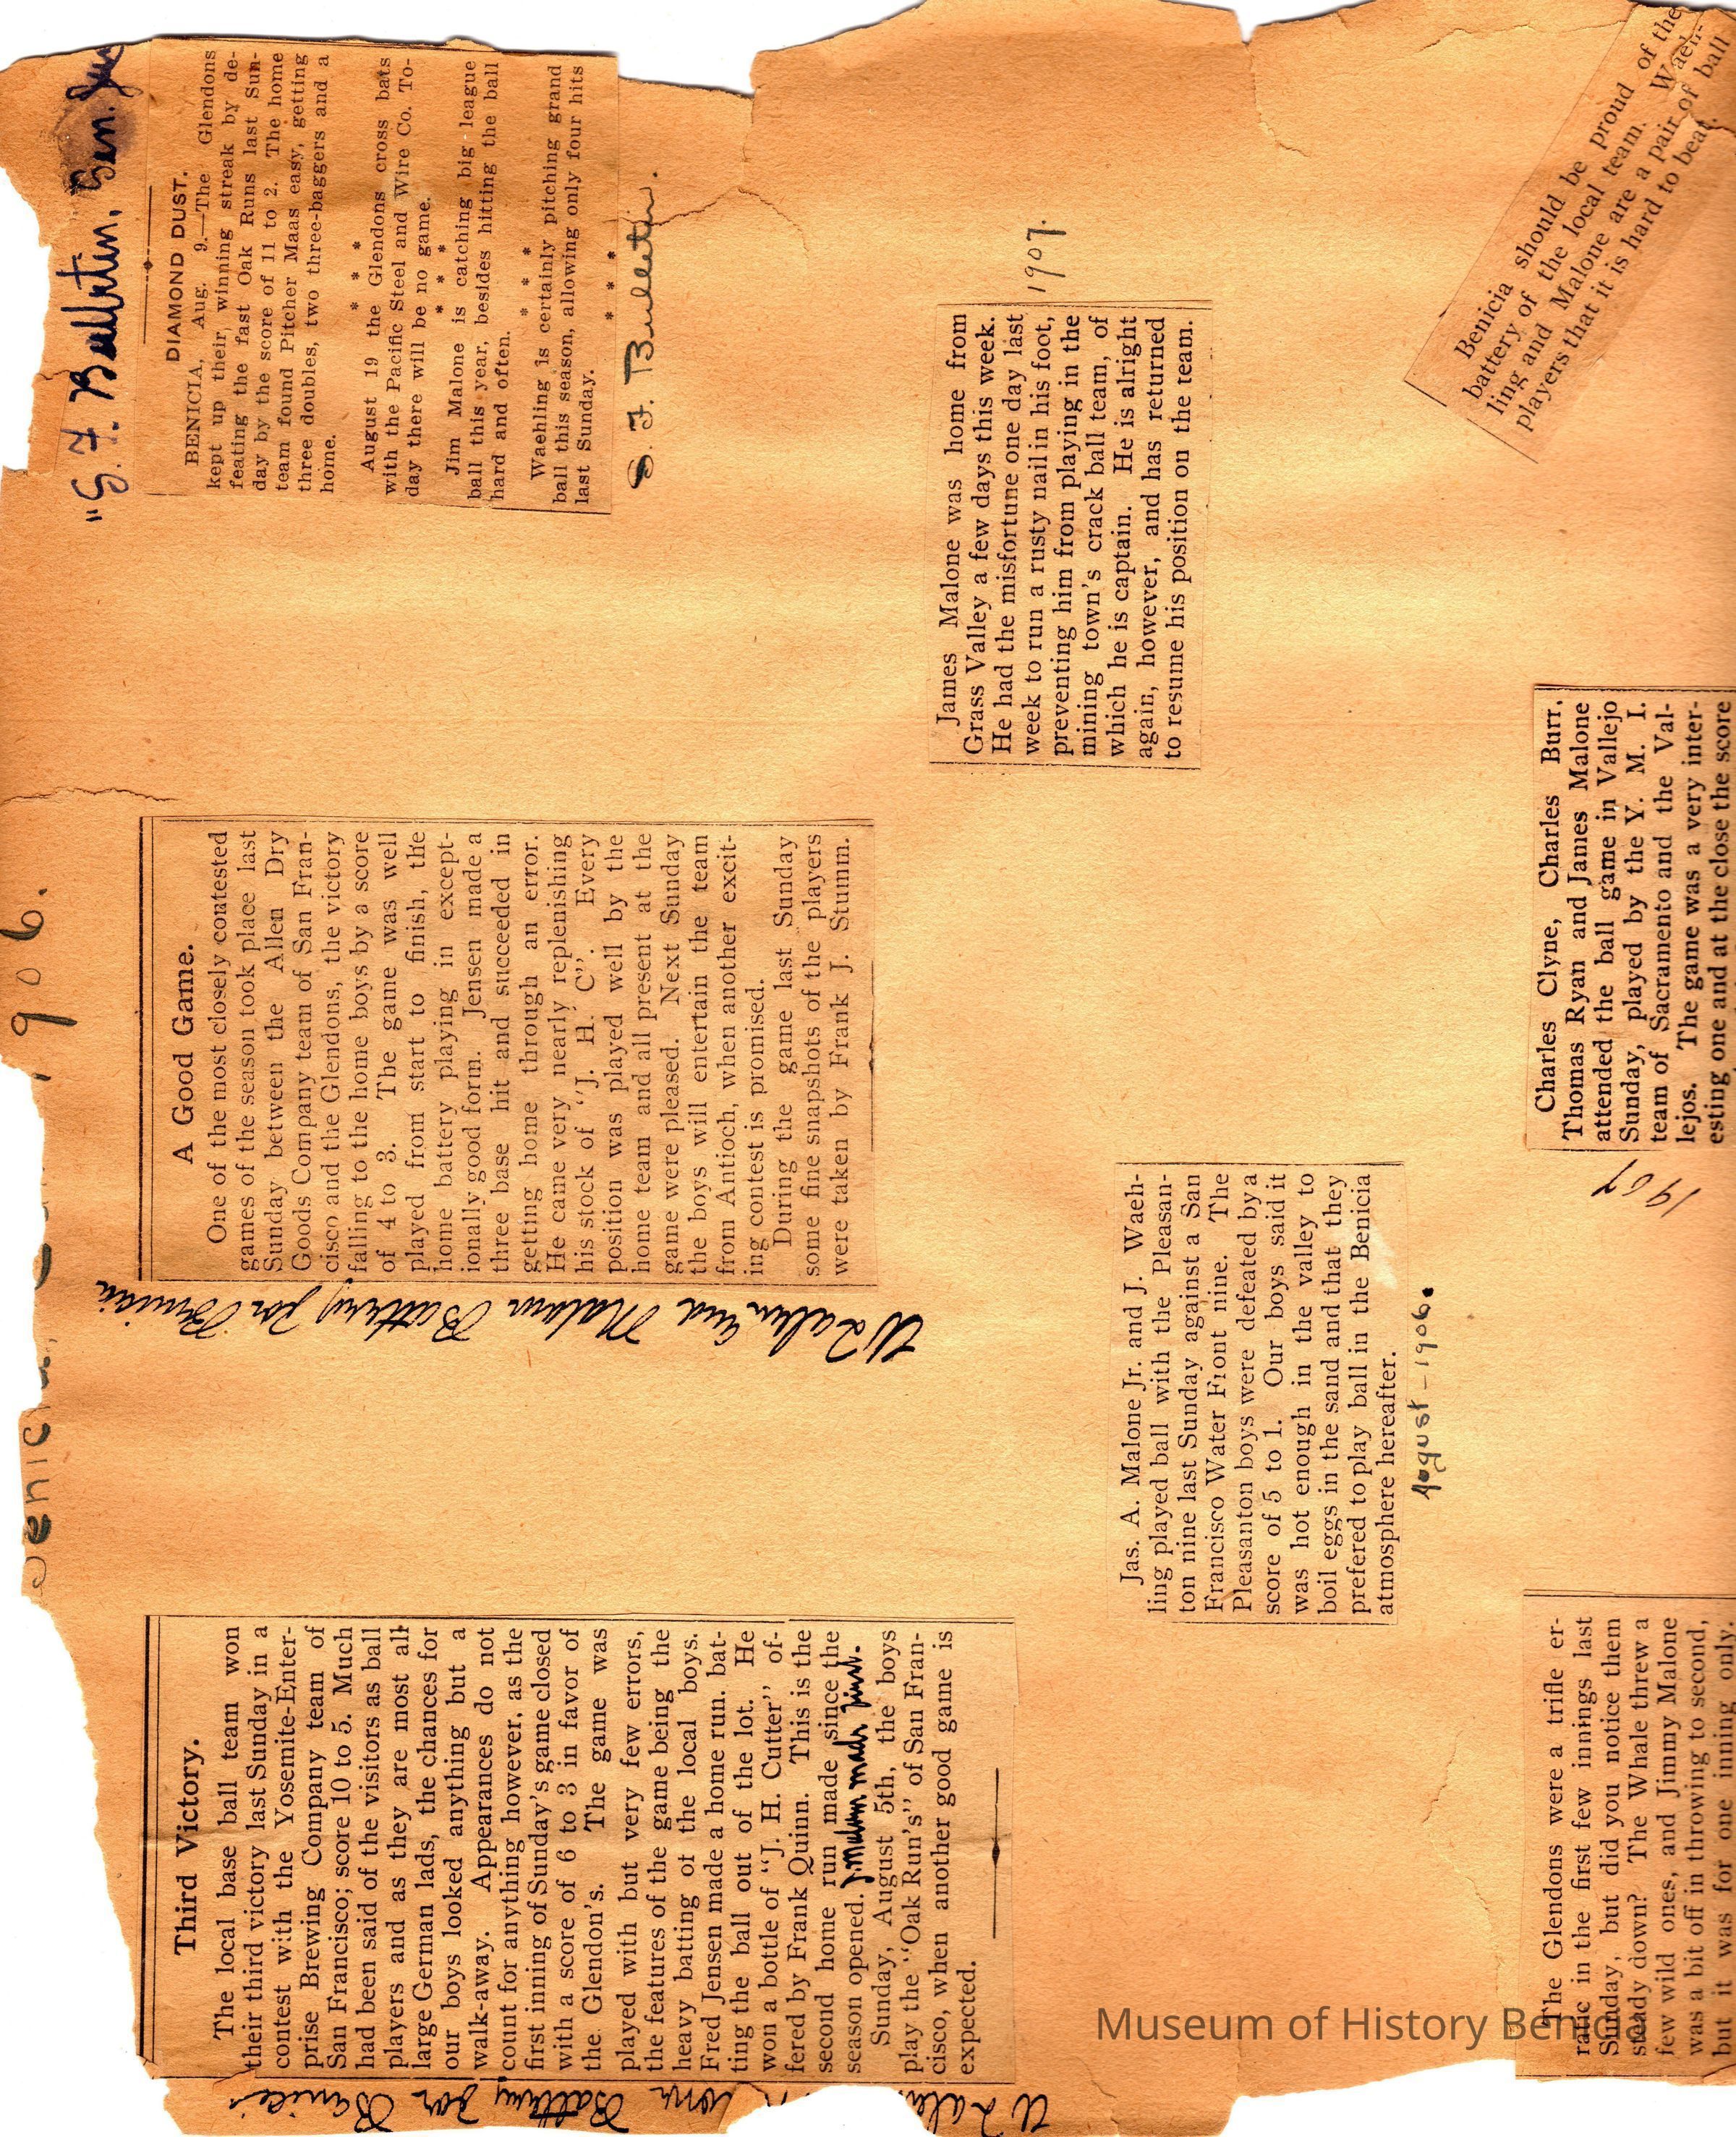 Third Victory.
The local base ball team won
their third victory last Sunday in a
contest with the Yosemite-Enter-
prise Brewing Company team of
San Francisco; score 10 to 5. Much
had been said of the visitors as ball
players and as they are most all
large German lads, the chances for
our boys looked anything but a
walk-away. Appearances do not
count for anything however, as the
first inning of Sunday's game closed
with a score of 6 to 3 in favor of
the Glendon's. The game was
played with but very few errors,
the features of the game being the
heavy batting of the local boys.
Fred Jensen made a home run. bat-
ting the ball out of the lot. He
won a bottle of "J. H. Cutter" of-
fered by Frank Quinn. This is the
second home run made since the
season opened. J. Malone made first.
Sunday, August 5th, the boys
play the "Oak Run's" of San Fran-
cisco, when another good game is
expected.
Battery for Benicia
1906.
A Good Game.
One of the most closely contested
games of the season took place last
Sunday between the Allen Dry
Goods Company team of San Fran-
cisco and the Glendons, the victory
falling to the home boys by a score
of 4 to 3. The game was well
played from start to finish, the
home battery playing in except-
ionally good form. Jensen made a
three base hit and succeeded in
getting home through an error.
He came very nearly replenishing
his stock of "J. H. C". Every
position was played well by the
home team and all present at the
game were pleased. Next Sunday
the boys will entertain the team
from Antioch, when another excit-
ing contest is promised.
During the game last Sunday
some fine snapshots of the players
were taken by Frank J. Stumm.
and Malone Battery for Benicia
"S. F. Bulletin,
DIAMOND DUST.
BENICIA, Aug. 9.—The Glendons
kept up their winning streak by de-
feating the fast Oak Runs last Sun-
day by the score of 11 to 2. The home
team found Pitcher Maas easy, getting
three doubles, two three-baggers and a
home.
* * *
August 19 the Glendons cross bats
with the Pacific Steel and Wire Co. To-
day there will be no game.
* * *
Jim Malone is catching big league
ball this year, besides hitting the ball
hard and often.
* * *
Waehling is certainly pitching grand
ball this season, allowing only four hits
last Sunday.
* * *
S. F. Bulletin.
James Malone was home from
Grass Valley a few days this week.
He had the misfortune one day last
week to run a rusty nail in his foot,
preventing him from playing in the
mining town's crack ball team, of
which he is captain. He is alright
again, however, and has returned
to resume his position on the team.
1907.
Jas. A. Malone Jr. and J. Waeh-
ling played ball with the Pleasan-
ton nine last Sunday against a San
Francisco Water Front nine. The
Pleasanton boys were defeated by a
score of 5 to 1. Our boys said it
was hot enough in the valley to
boil eggs in the sand and that they
prefered to play ball in the Benicia
atmosphere hereafter.
August-1906.
Benicia should be proud of the
battery of the local team. Waeh-
ling and Malone are a pair of ball
players that it is hard to beat.
Charles Clyne, Charles Burr,
Thomas Ryan and James Malone
attended the ball game in Vallejo
Sunday, played by the Y. M. I.
team of Sacramento and the Val-
lejos. The game was a very inter-
esting one and at the close the score
1907
The Glendons were a trifle er-
ratic in the first few innings last
Sunday, but did you notice them
steady down? The Whale threw a
few wild ones, and Jimmy Malone
was a bit off in throwing to second,
but it was for one inning only.
Museum of History Benicia